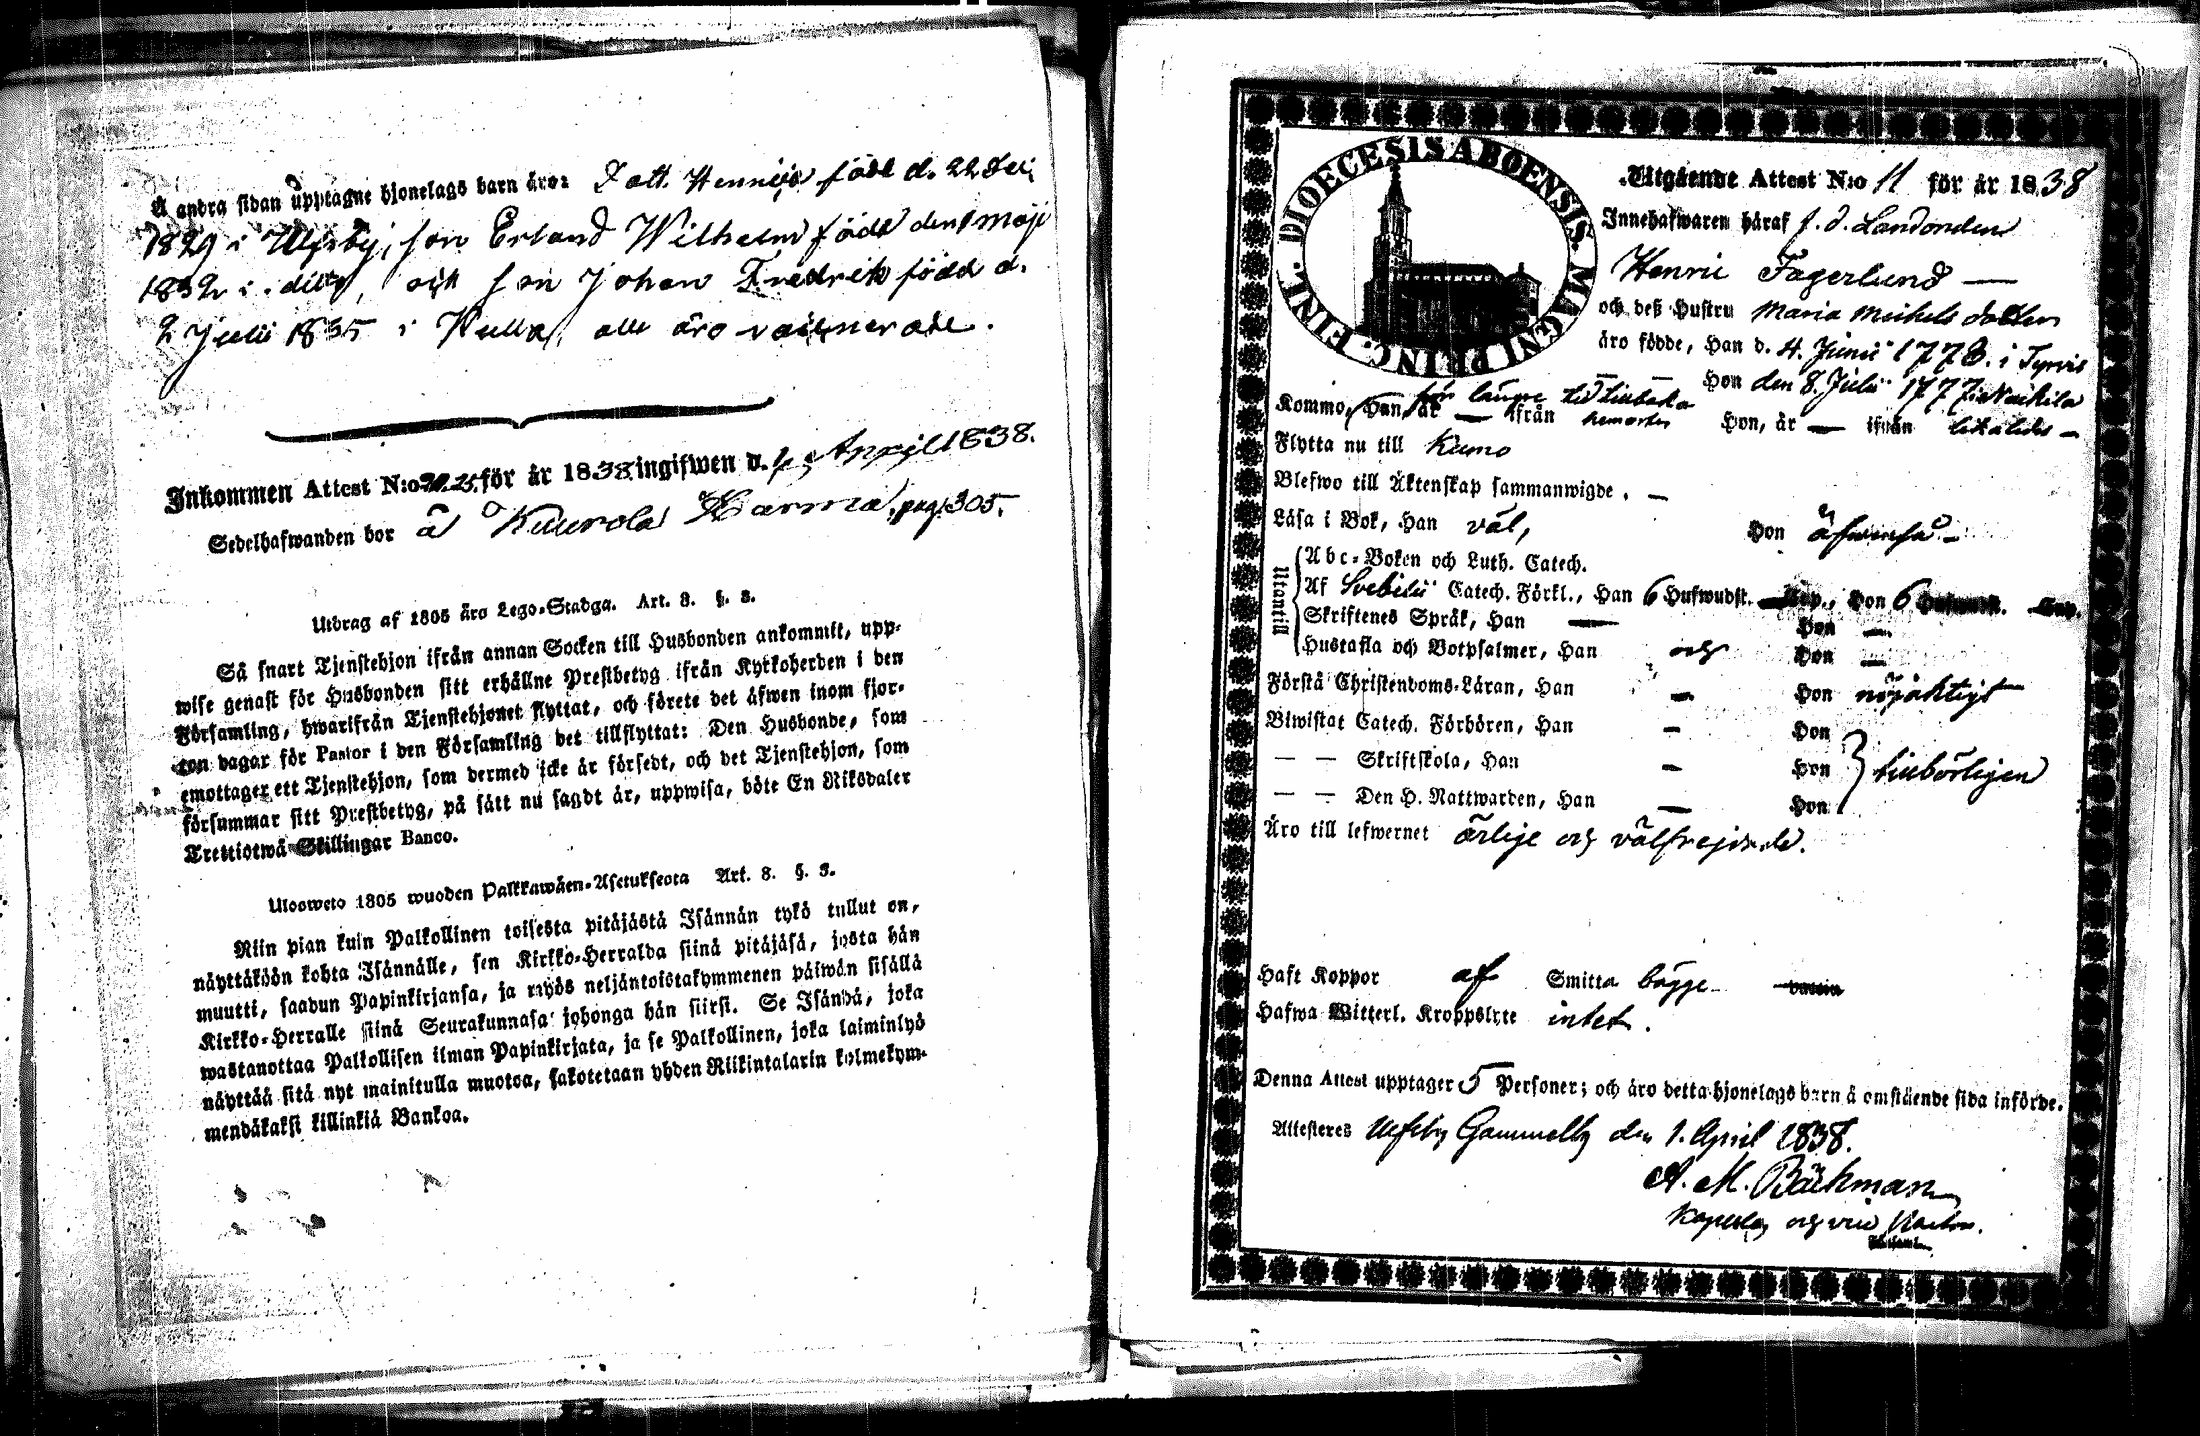 Å andra sidan upptagne hjonelags barn äro: född d. 22
1829 i son Erland Wilhelm född den 1 Maji
1832 i ditto, och son Johan Fredrik född d.
2 Julii 1835 i Kulla, alle äro
Inkommen Attest N:o 25 för år 1838 ingifwen d. April 1838.
Sedelhafwanden bor å pag. 305.
Utdrag af 1805 års Lego-Stadga. Art. 3. §. 3.
Så snart Tjenstehjon ifrån annan Socken till Husbonden ankommit, upp-
wise genast för Husbonden sitt erhållne Prestbetyg ifrån Kyrkoherden i den
Församling, hwarifrån Tjenstehjonet flyttat, och förete det äfwen inom fjor-
ton dagar för Pastor i den Församling det tillflyttat: Den Husbonde, som
emottager ett Tjenstehjon, som dermed icke är försedt, och det Tjenstehjon, som
försummar sitt Prestbetyg, på sätt nu sagdt är, uppwisa, böte En Riksdaler
Trettiotwå Skillingar Banco.
Ulosweto 1805 wuoden Palkkawäen-Asetuksesta Art. 3. §. 3.
Niin pian kuin Palkollinen toisesta pitäjästä Isännän tykö tullut on,
näyttäköön kohta Isännälle, sen Kirkko-Herralda siinä pitäjäsä, josta hän
muutti, saadun Papinkirjansa, ja myös neljäntoistakymmenen päiwän sisällä
Kirkko-Herralle siinä Seurakunnasa johonga hän siirsi. Se Isändä, joka
wastanottaa Palkollisen ilman Papinkirjata, ja se Palkollinen, joka laiminlyö
näyttää sitä nyt mainitulla muotoa, sakotetaan yhden Riikintalarin kolmekym-
mendäkaksi killinkiä Bankoa.
DIOECESIS ABOENSIS MAGNI PRINC. FINL.
Utgående Attest N:o 11 för år 1838
Innehafwaren häraf f. d. Landbonden
Henric Fagerlund —
och deß Hustru Maria Michels dotter
äro födde, Han d. 4. Junii 1773. i Tyrvis
Hon den 8. Julii 1777 i
Kommo, Han, är för längre tid tillbaka ifrån Hon, är — ifrån likaledes —
Flytta nu till Kumo
Blefwo till Äktenskap sammanwigde. —
Läsa i Bok, Han väl, Hon äfvenså —
Utantill
Abc-Boken och Luth. Catech.
Af Svebilii Catech. Förkl., Han 6 Hufwudst. Hon 6 Hufwudst.
Skriftenes Språk, Han — Hon —
Hustafla och Botpsalmer, Han och Hon —
Förstå Christendoms-Läran, Han — Hon nöjaktigt
Biwistat Catech. Förhören, Han — Hon
— — Skriftskola, Han — Hon tillbörligen
— — Den H. Nattwarden, Han — Hon
Äro till lefwernet ärlige och välfrejdade.
Haft Koppor af Smitta bägge
Hafwa Witterl. Kroppslyte intet.
Denna Attest upptager 5 Personer; och äro detta hjonelags barn å omstående sida införde.
Attesteres Ulfsby Gammelby den 1. April 1838.
A. M. Bäckman